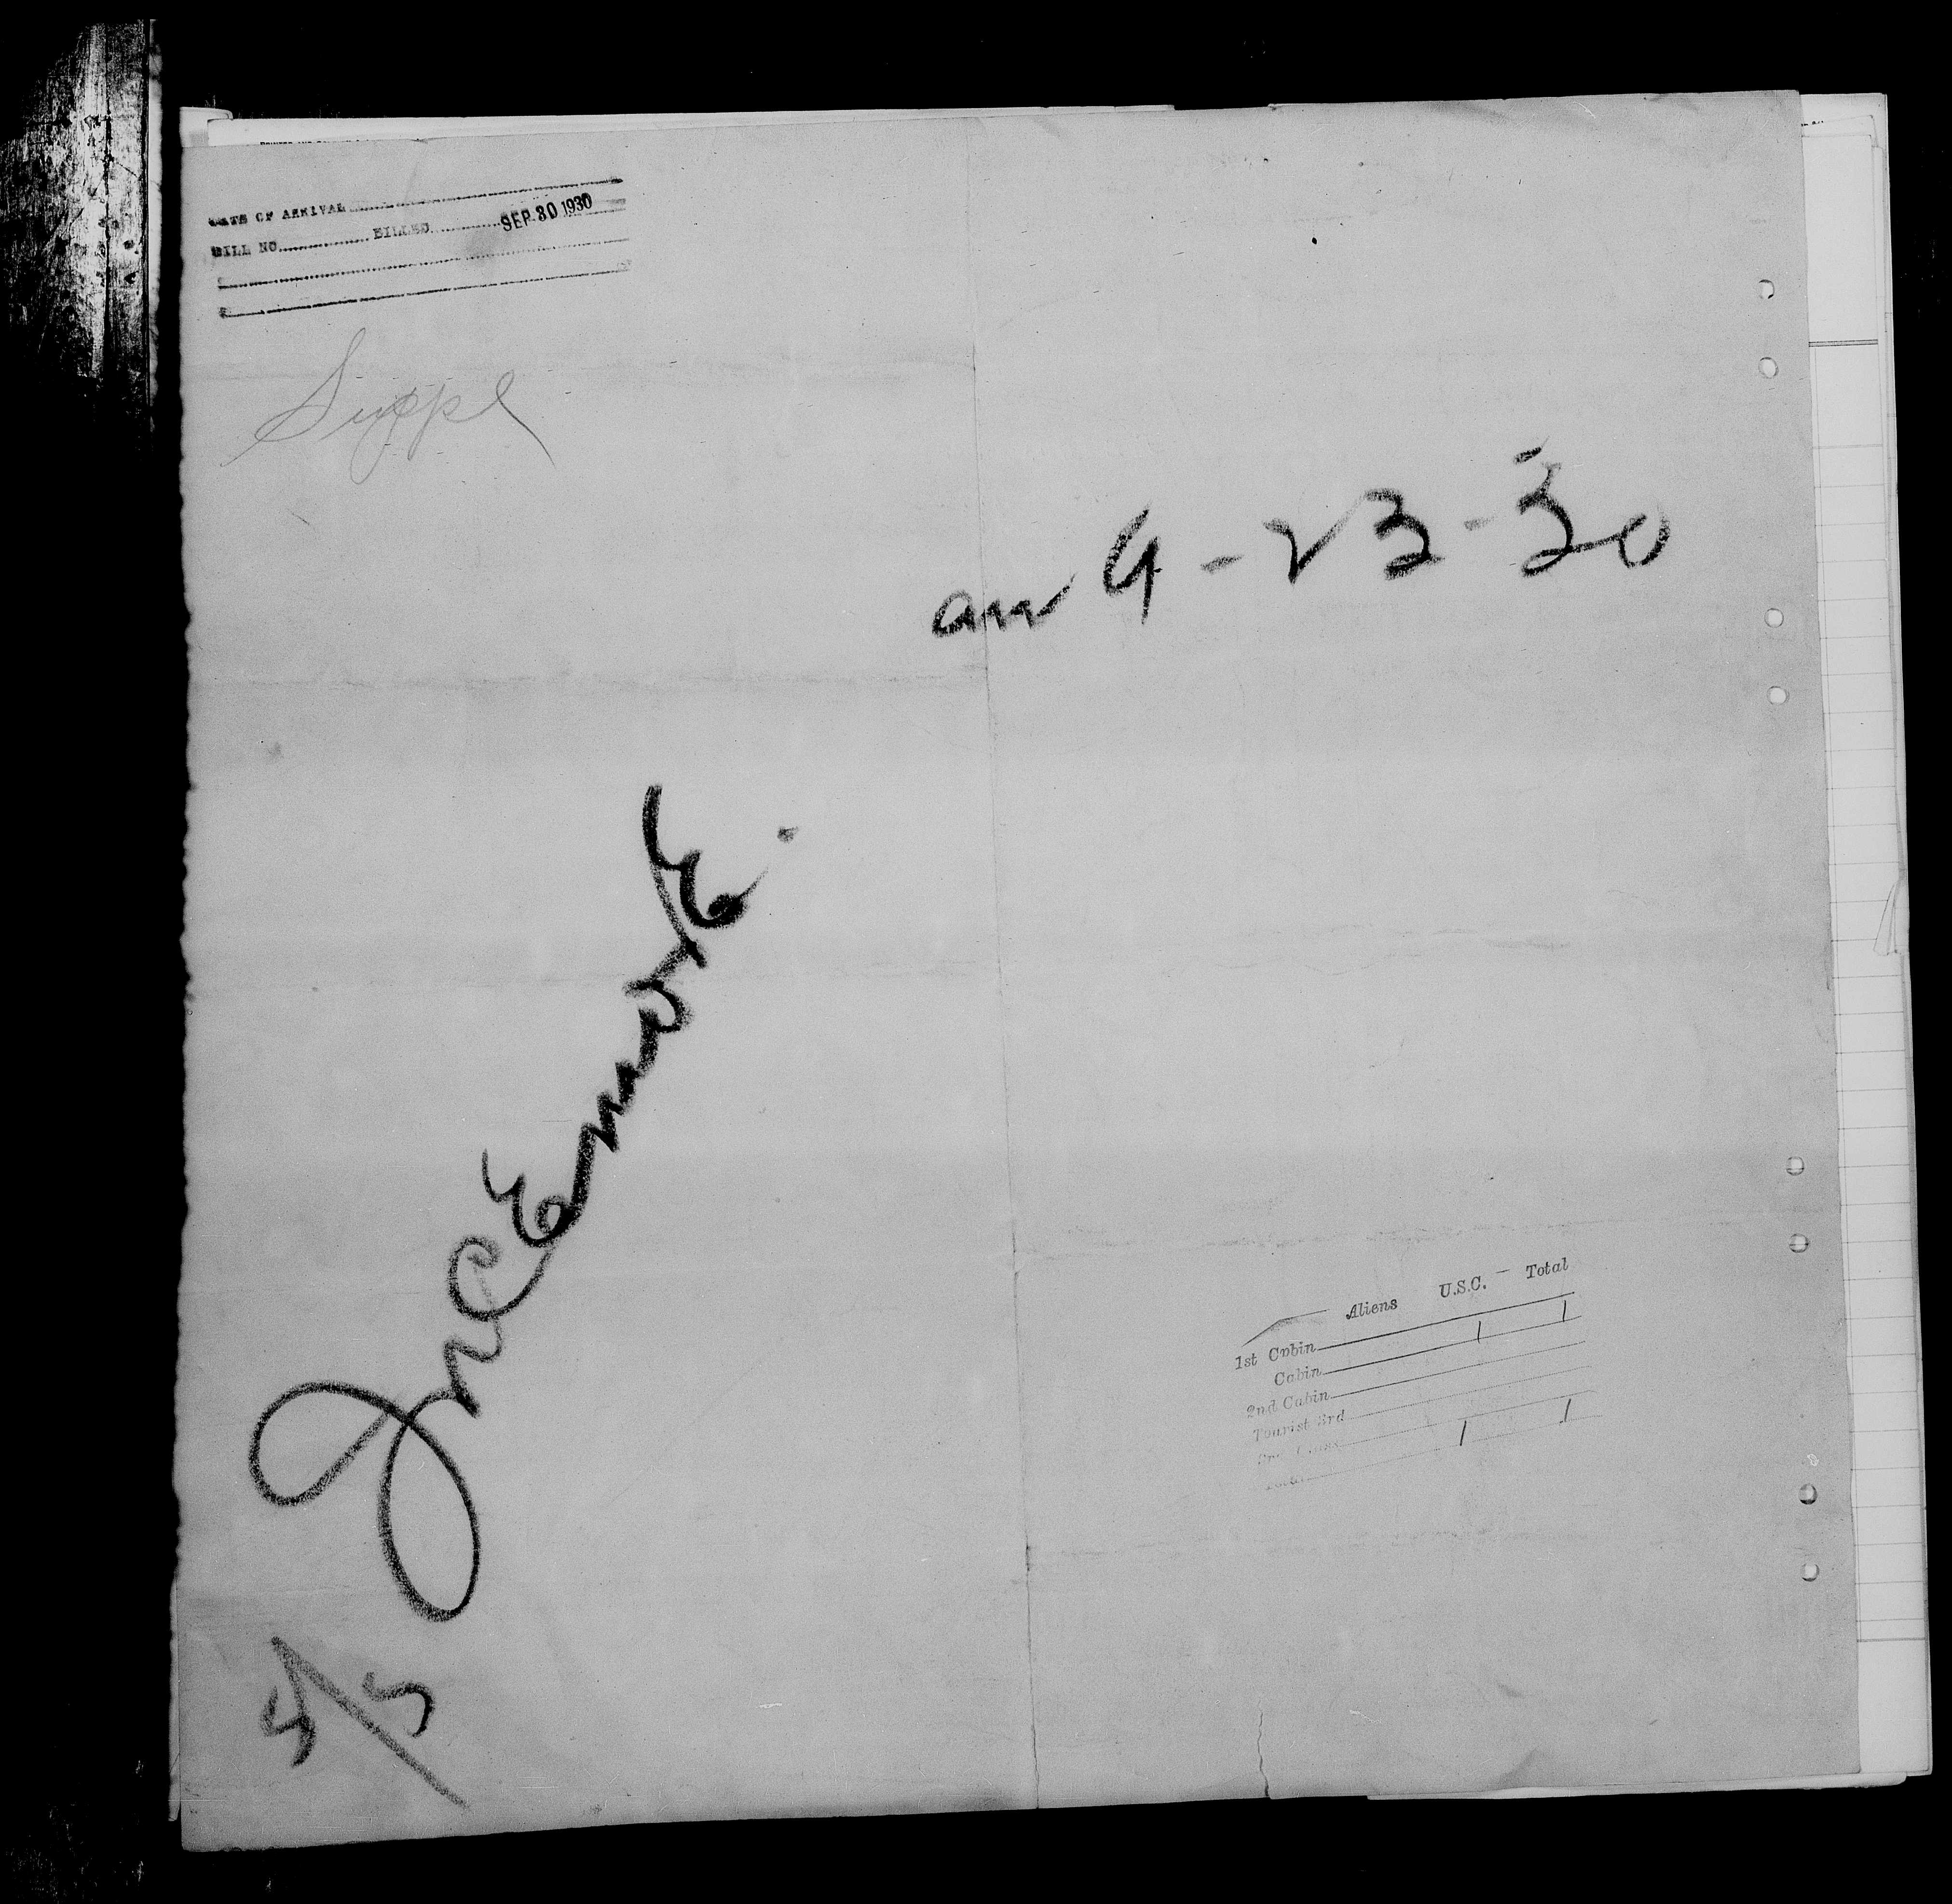 DATE OF ARRIVAL
BILL NO. BILLED SEP 30 1930
Suppl
arr 9-23-30
S/S
Aliens U.S.C. Total
1st Cabin 1 1
Cabin
2nd Cabin
Tourist 3rd
Total 1 1